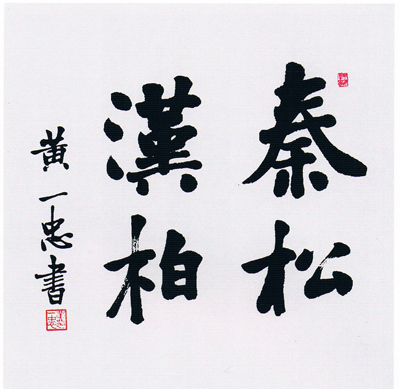 秦松
漢柏
黄一忠書